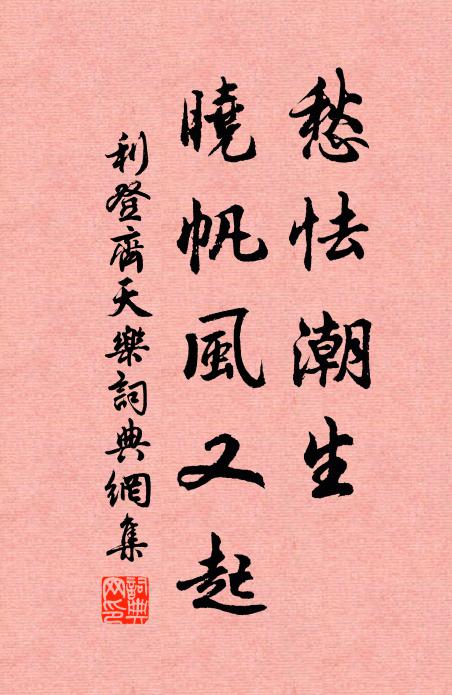 愁怯潮生
曉帆風又起
利登齊天樂詞典網集
詞典網印